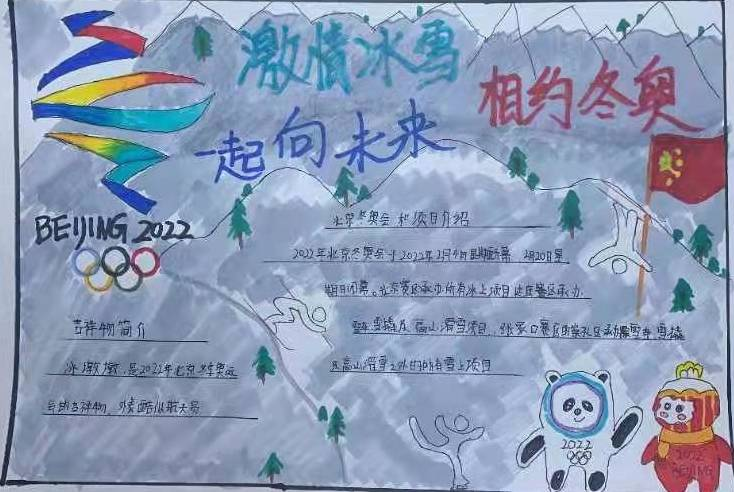 激情冰雪
相约冬奥
一起向未来
BEIJING 2022
北京冬奥会和项目介绍
2022年北京冬奥会于2022年2月4日星期五开幕 2月20日星
期日闭幕。北京赛区承办所有冰上项目延庆赛区承办
雪车雪橇及高山滑雪项目,张家口赛区的崇礼区承办除雪车 雪橇
及高山滑雪之外的所有雪上项目
吉祥物简介
冰墩墩,是2022年北京冬季奥运
会的吉祥物,外表酷似航天员
2022
2022
BEIJING